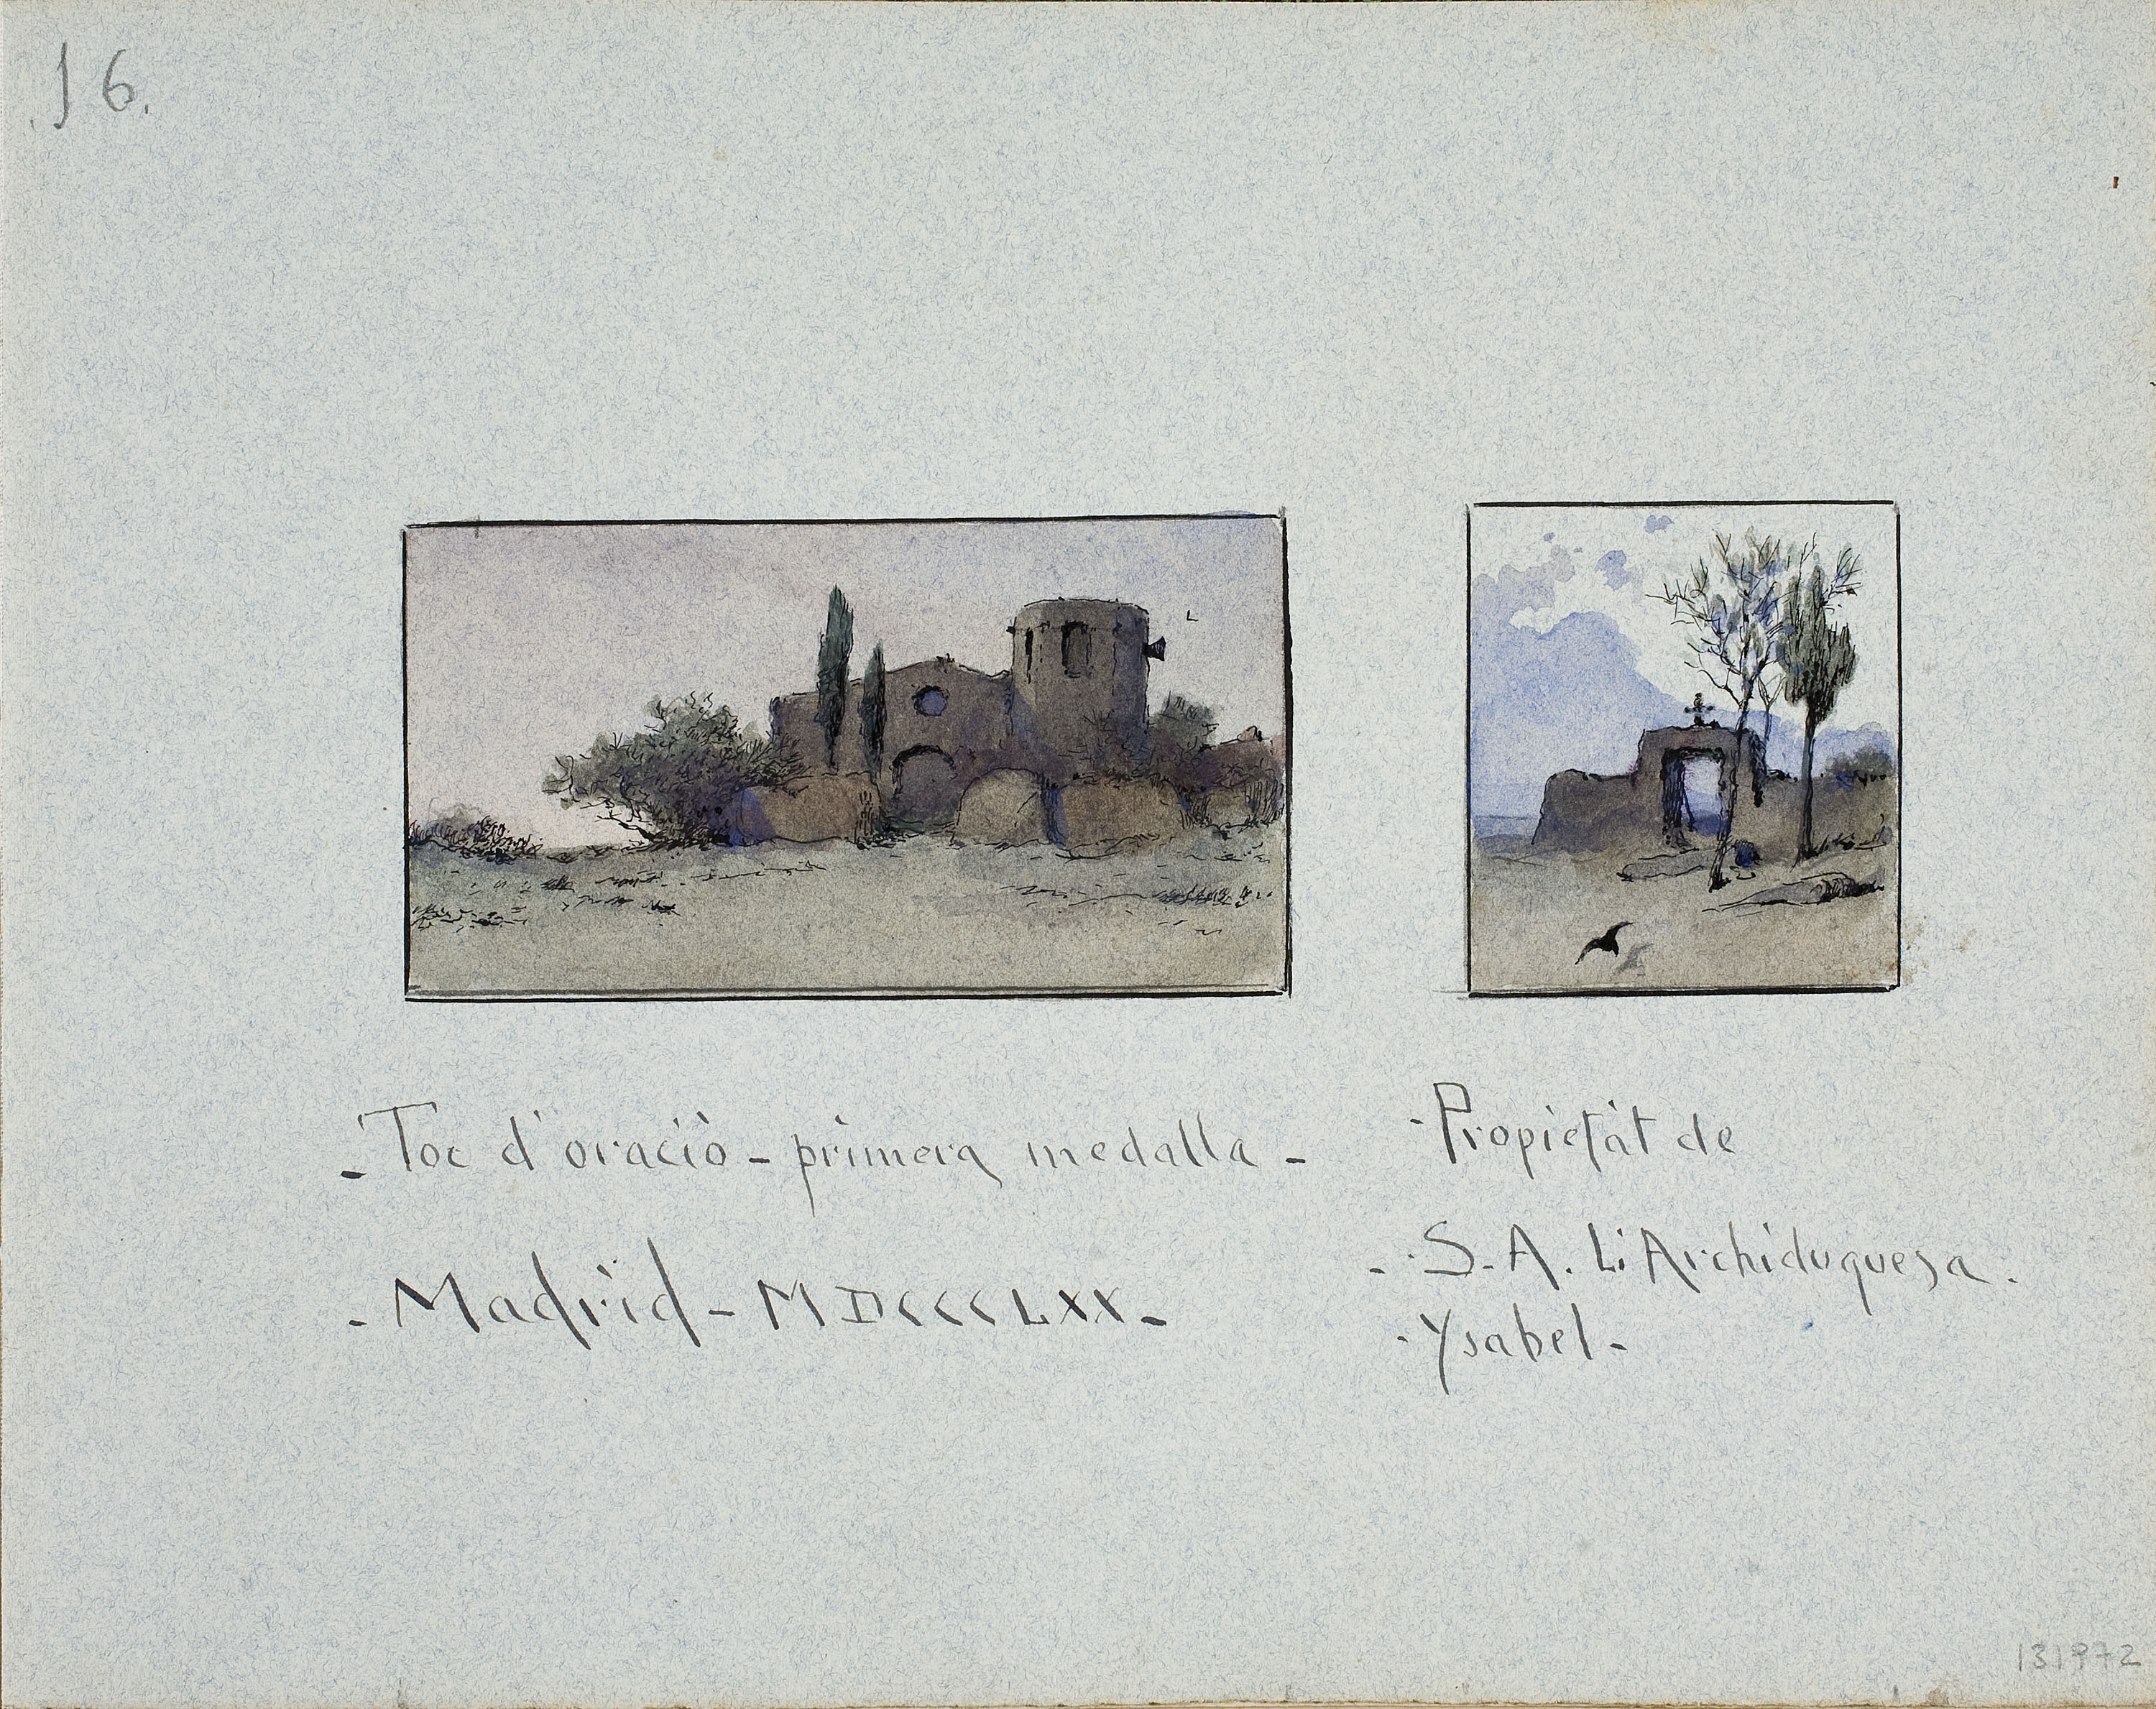 16.
- Toc d'oració - primera medalla -
- Madrid - MDCCCLXX -
- Propietát de
- S. A. L'Archiduquesa.
- Ysabel -
131972